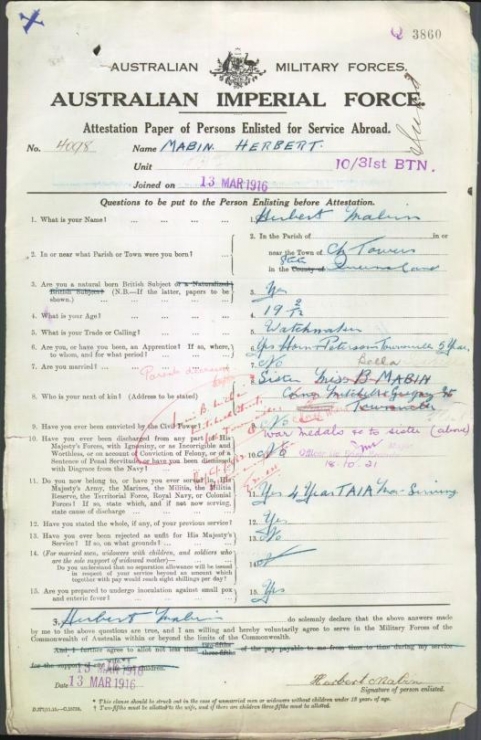 Q 3860
AUSTRALIAN MILITARY FORCES.
AUSTRALIAN IMPERIAL FORCE.
Attestation Paper of Persons Enlisted for Service Abroad.
No. 4098 Name MABIN HERBERT.
Unit 10/31st BTN.
Joined on 13 MAR 1916
Questions to be put to the Person Enlisting before Attestation.
1. What is your Name? ... ... ... ... 1. Herbert Mabin
2. In or near what Parish or Town were you born? 2. In the Parish of in or
near the Town of Ch Towers
in the County of Queensland
3. Are you a natural born British Subject or a Naturalized
British Subject? (N.B.—If the latter, papers to be
shown.) 3. Yes
4. What is your Age? 4. 19
5. What is your Trade or Calling? 5. Watchmaker
6. Are you, or have you been, an Apprentice? If so, where,
to whom, and for what period? 6. Yes Townsville 5 Years
7. Are you married? 7. No
8. Who is your next of kin? (Address to be stated) 8. Sister Miss B MABIN
9. Have you ever been convicted by the Civil Power? 9. No
War medals to sister (above)
10. Have you ever been discharged from any part of His
Majesty's Forces, with Ignominy, or as Incorrigible and
Worthless, or on account of Conviction of Felony, or of a
Sentence of Penal Servitude, or have you been dismissed
with Disgrace from the Navy? 10. No
18.10.21
11. Do you now belong to, or have you ever served in, His
Majesty's Army, the Marines, the Militia, the Militia
Reserve, the Territorial Force, Royal Navy, or Colonial
Forces? If so, state which, and if not now serving,
state cause of discharge 11. Yes 4 Years Now Serving
12. Have you stated the whole, if any, of your previous service? 12. Yes
13. Have you ever been rejected as unfit for His Majesty's
Service? If so, on what grounds? 13. No
14. (For married men, widowers with children, and soldiers who
are the sole support of widowed mother)—
Do you understand that no separation allowance will be issued
in respect of your service beyond an amount which
together with pay would reach eight shillings per day? 14.
15. Are you prepared to undergo inoculation against small pox
and enteric fever? 15. Yes
I, Herbert Mabin do solemnly declare that the above answers made
by me to the above questions are true, and I am willing and hereby voluntarily agree to serve in the Military Forces of the
Commonwealth of Australia within or beyond the limits of the Commonwealth.
And I further agree to allot not less than two-fifths three-fifths of the pay payable to me from time to time during my service
for the support of my wife and children.
13 MAR 1916
Date 13 MAR 1916
Herbert Mabin
Signature of person enlisted.
* This clause should be struck out in the case of unmarried men or widowers without children under 18 years of age.
† Two-fifths must be allotted to the wife, and if there are children three-fifths must be allotted.